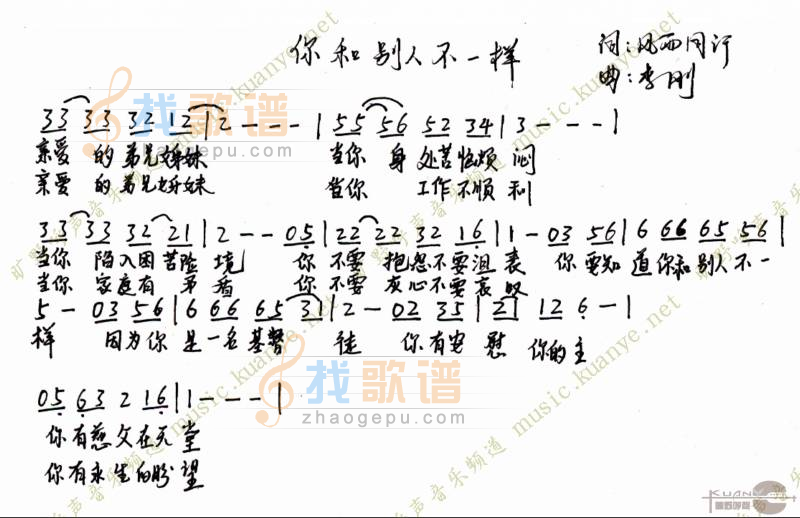 你和别人不一样
词:风雨同行
曲:李刚
33 33 32 12 | 2 - - - | 55 56 52 34 | 3 - - - |
亲爱 的弟兄姊妹 当你 身处苦恼烦 闷
亲爱 的弟兄姊妹 当你 工作不顺利
33 33 32 21 | 2 - - 05 | 22 22 32 16 | 1 - 03 56 | 6 66 65 56 |
当你 陷入困苦险境 你 不要 抱怨不要沮丧 你要知 道你和别人不一
当你 家庭有 矛盾 你 不要 灰心不要哀叹
5 - 03 56 | 6 66 65 31 | 2 - 02 35 | 21 12 6 - |
样 因为你 是一名基督 徒 你有安 慰 你的主
05 63 2 16 | 1 - - - |
你有慈父在天堂
你有永生的盼望
找歌谱
zhaogepu.com
找歌谱
zhaogepu.com
旷野呼声音乐频道 music.kuanye.net
KUANYE